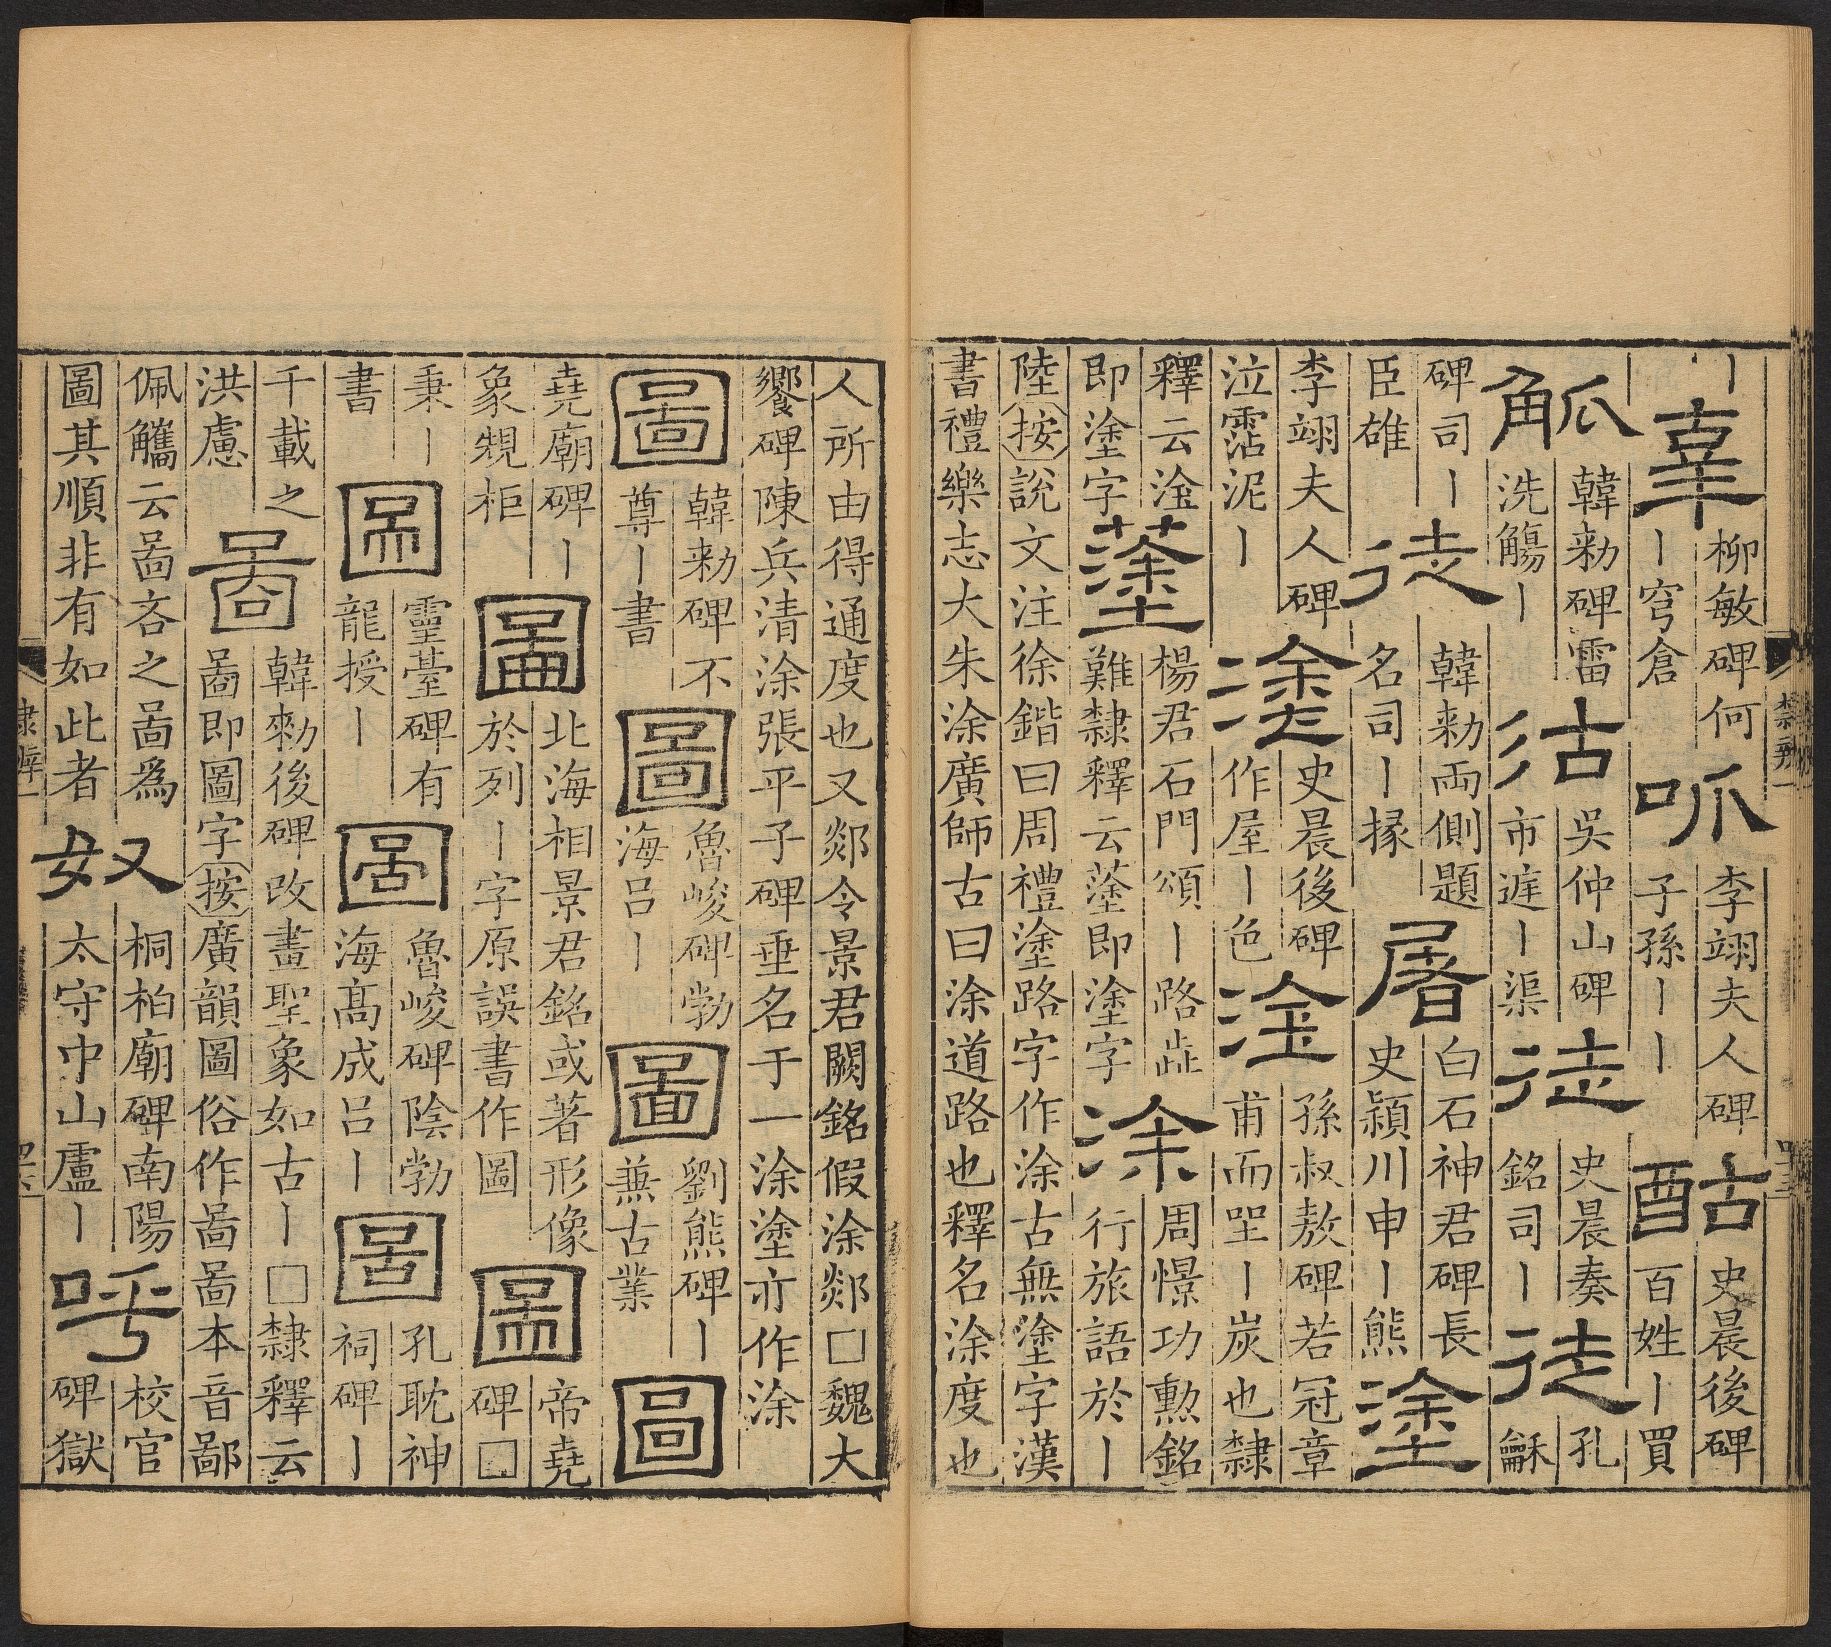 丨辜柳敏碑何丨穹倉呱李翊夫人碑子孫丨丨酤史晨後碑百姓丨買
觚韓勑碑雷洗觴丨沽吳仲山碑市丨渠徒史晨奏銘司丨徒孔龢
碑司丨臣雄徒韓勑兩側題名司丨掾屠白石神君碑長史潁川申丨熊塗
李翊夫人碑泣霑泥丨塗史晨後碑作屋丨色淦孫叔敖碑若冠章甫而坐丨炭也隸
釋云淦即塗字蓬楊君石門頌丨路歮難隸釋云蓬即塗字涂周憬功勳銘行旅語於丨
陸按說文注徐鍇曰周禮塗路字作涂古無塗字漢書禮樂志大朱涂廣師古曰涂道路也釋名涂度也
人所由得通度也又郯令景君闕銘假涂郯□魏大饗碑陳兵清涂張平子碑垂名于一涂塗亦作涂
圖韓勑碑不尊丨書圖魯峻碑勃海呂丨圖劉熊碑丨兼古業圖
堯廟碑丨象䂓柜圖北海相景君銘或著形像於列丨字原誤書作圖圖帝堯碑□
秉丨書圖靈臺碑有龍授丨圖魯峻碑陰勃海高成呂丨圖孔耽神祠碑丨
千載之洪慮啚韓勑後碑改畫聖象如古丨□隸釋云啚即圖字按廣韻圖俗作啚啚本音鄙
佩觿云啚吝之啚爲圖其順非有如此者奴桐柏廟碑南陽太守中山盧丨呼校官碑獄